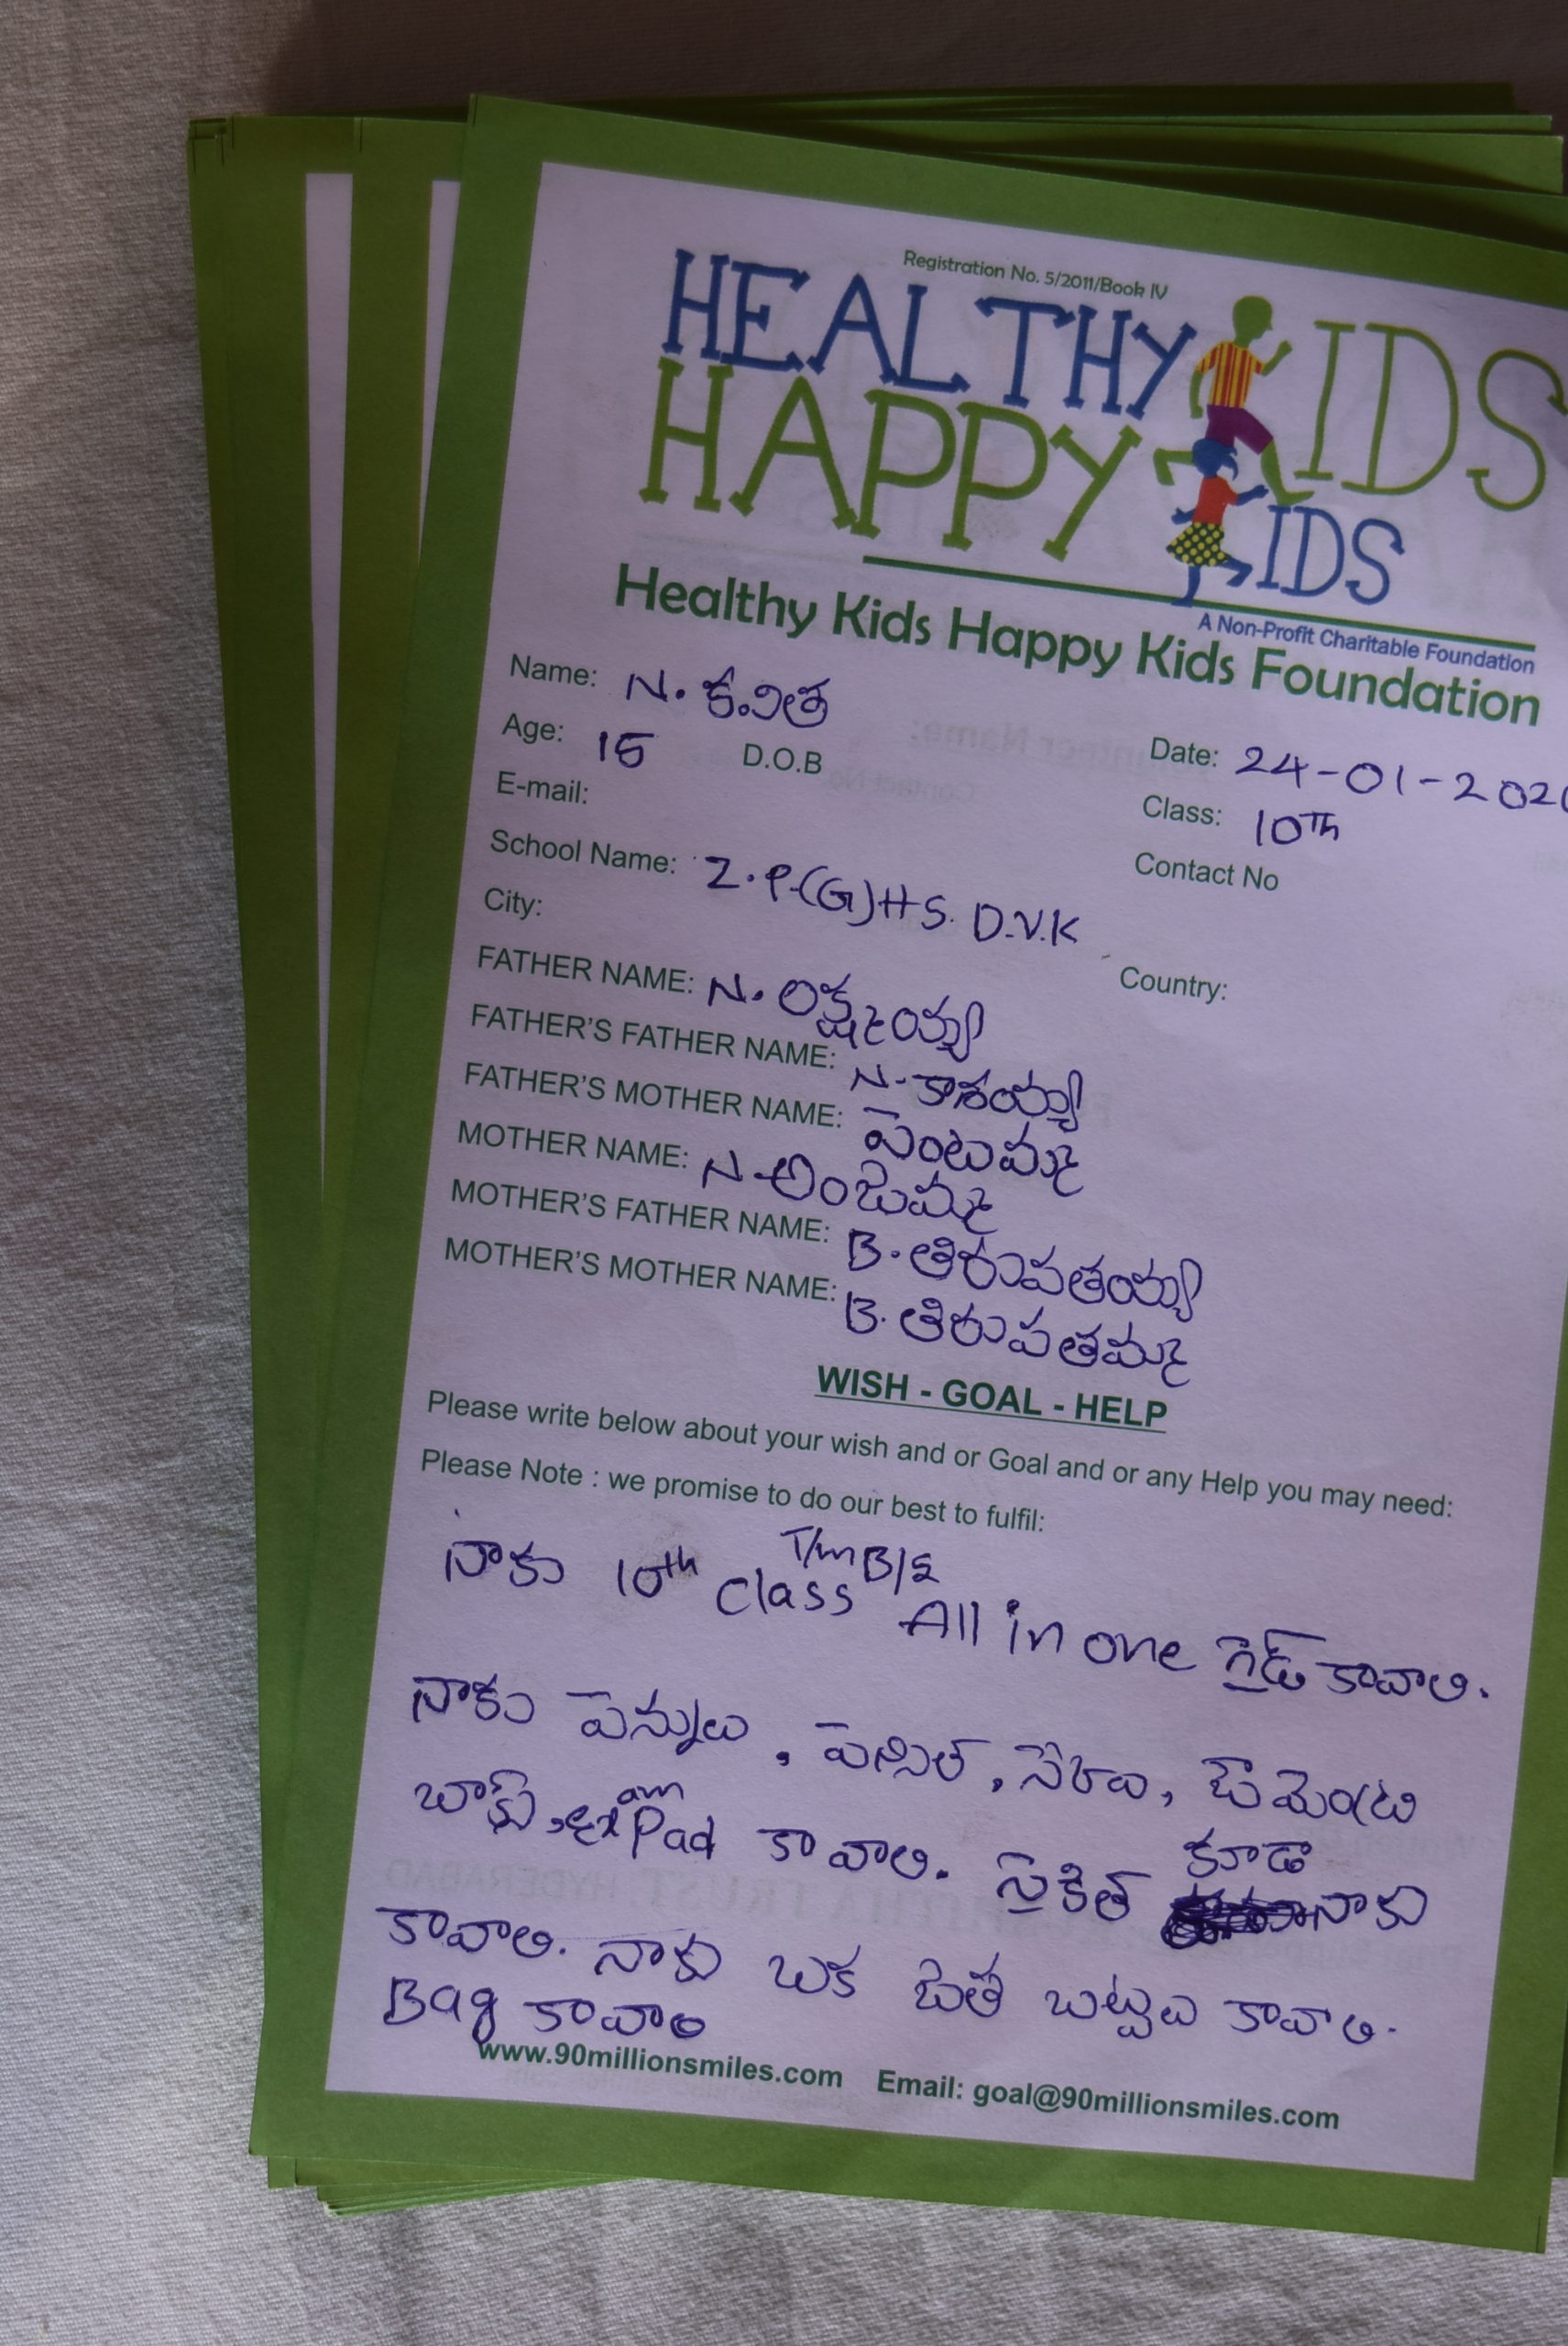 Registration No. 5/2011/Book IV
HEALTHY KIDS
HAPPY KIDS
A Non-Profit Charitable Foundation
Healthy Kids Happy Kids Foundation
Name: N. కవిత
Date: 24-01-202
Age: 15 D.O.B
Class: 10Th
E-mail:
Contact No
School Name: Z.P.(G)HS. D.V.K
City:
Country:
FATHER NAME: N. లక్ష్మయ్య
FATHER'S FATHER NAME: N. కాశయ్య
FATHER'S MOTHER NAME: పెంటమ్మ
MOTHER NAME: N. అంజమ్మ
MOTHER'S FATHER NAME: B. తిరుపతయ్య
MOTHER'S MOTHER NAME: B. తిరుపతమ్మ
WISH - GOAL - HELP
Please write below about your wish and or Goal and or any Help you may need:
Please Note : we promise to do our best to fulfil:
నాకు 10th Class T/m All in one గైడ్ కావాలి.
నాకు పెన్నులు, పెన్సిల్,
బాక్స్, exam Pad కావాలి. సైకిల్ కూడా నాకు
కావాలి. నాకు ఒక జత బట్టలు కావాలి.
Bag కావాలి
www.90millionsmiles.com Email: goal@90millionsmiles.com